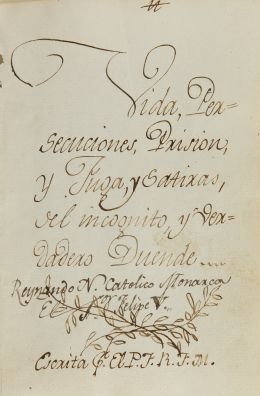 Vida, Per=
secuciones, Prision,
y Fuga, y Satiras,
del incognito, y ver=
dadero Duende
Reynando N. Catolico Monarca
El Sr Felipe V.
Escrita P. El P. F. R. F. M.